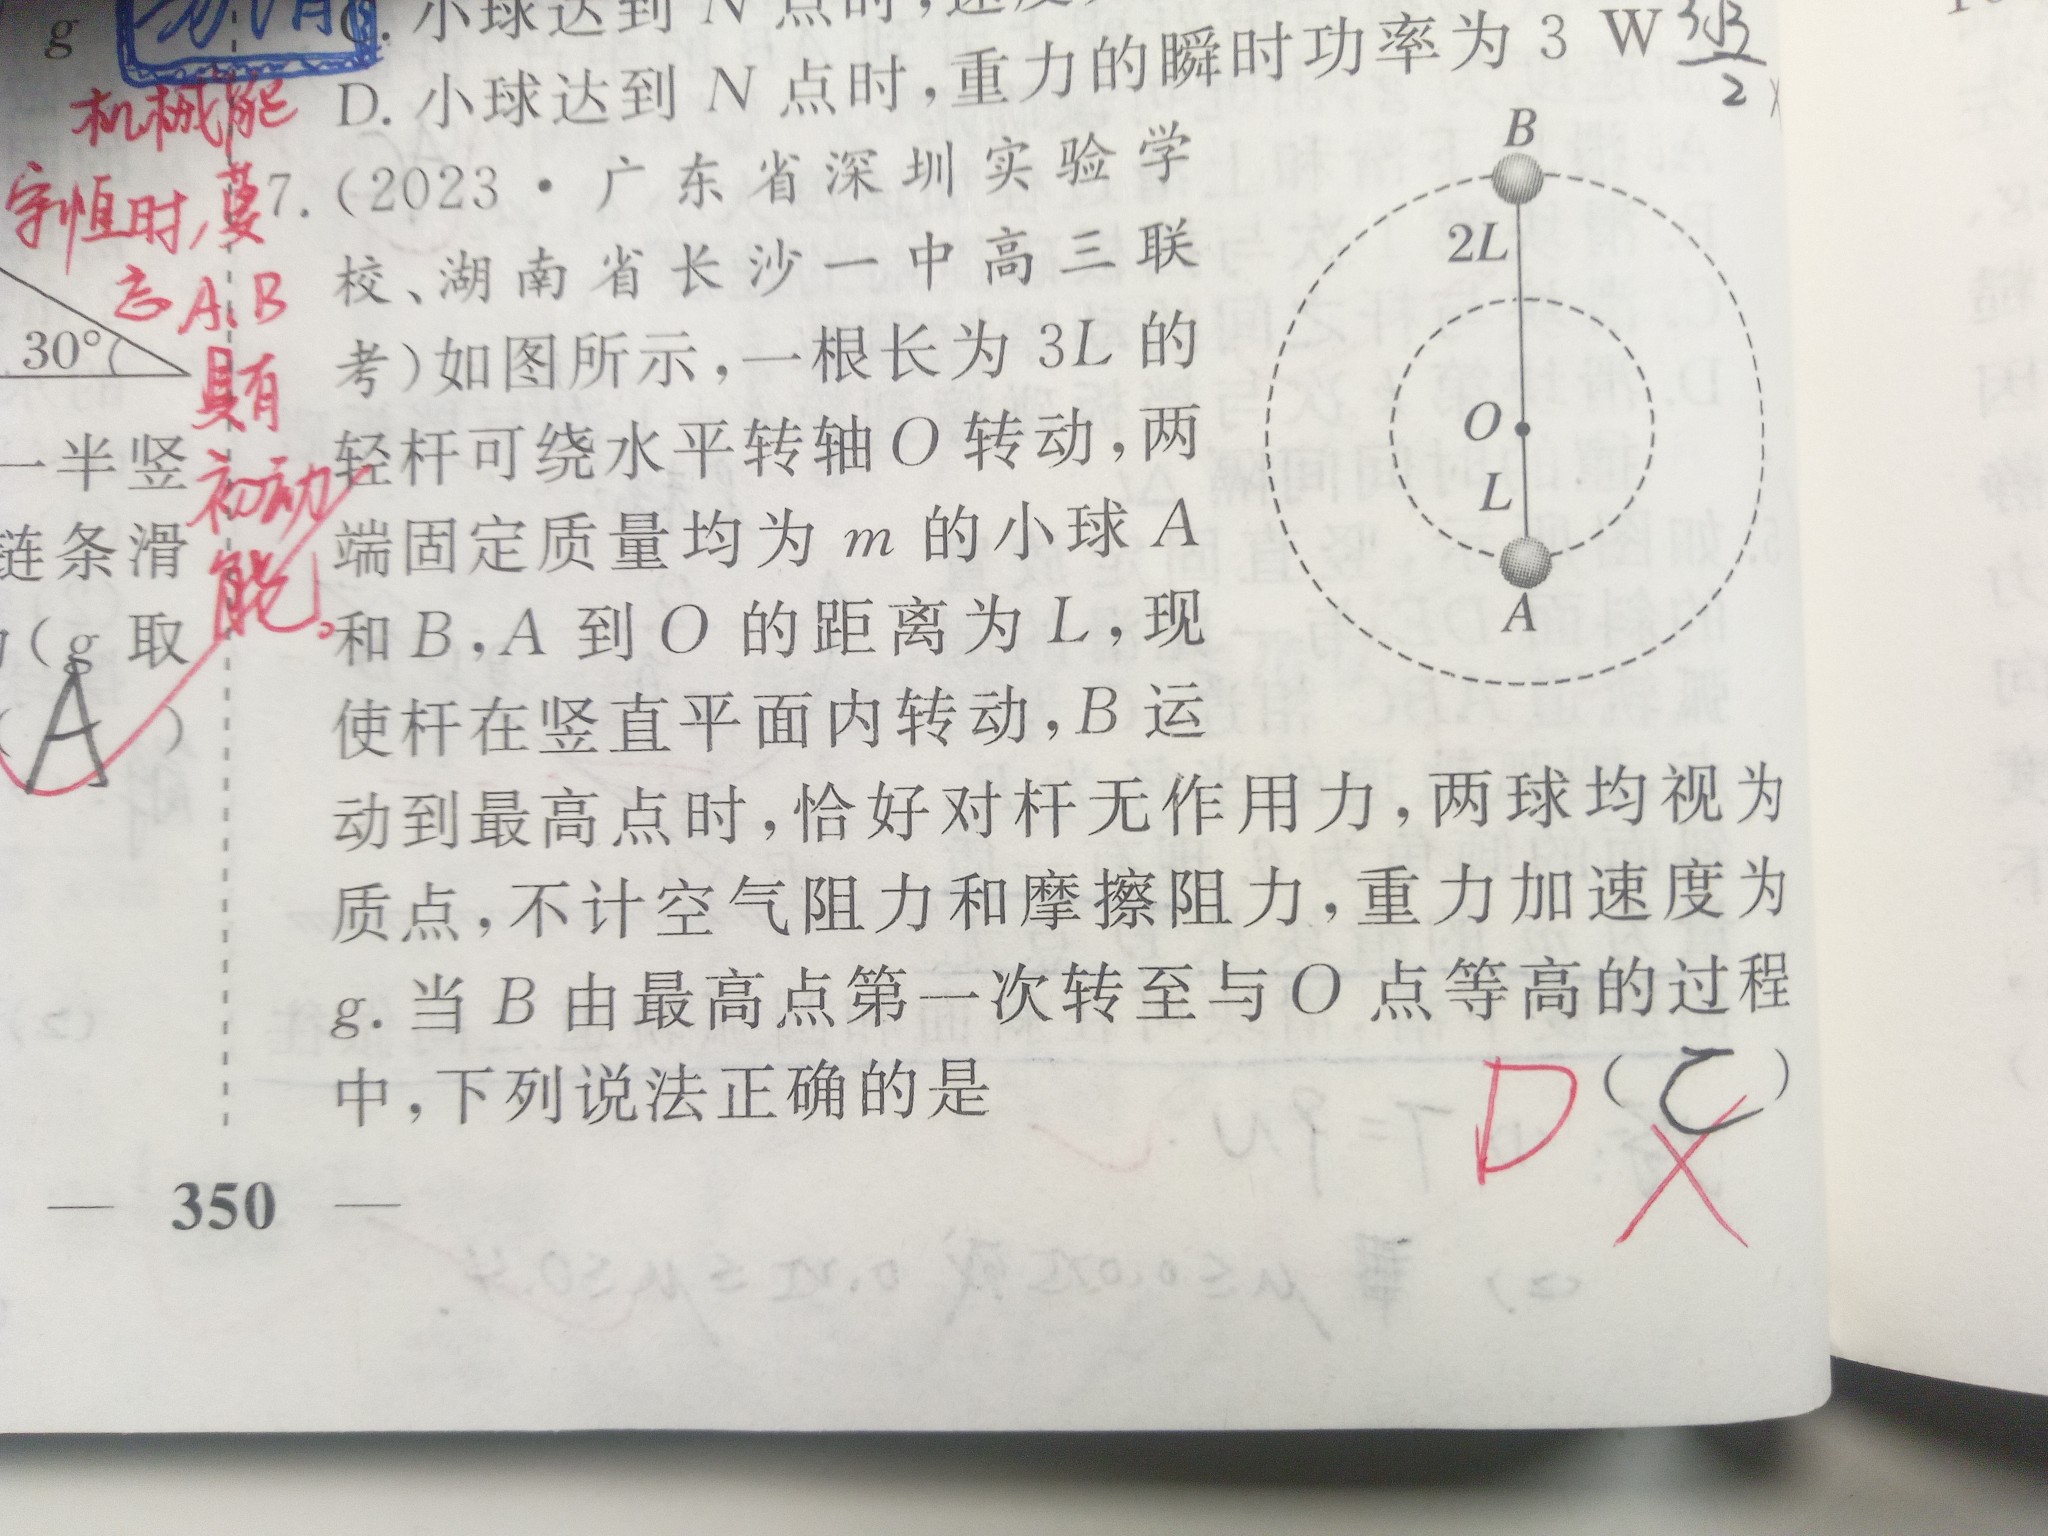 g
C. 小球达到 N 点时,速度
D. 小球达到 N 点时,重力的瞬时功率为 3 W
2
机械能
守恒时,莫
忘A、B
具有
初动
能。
30°
一半竖
链条滑
(g 取
(A)
7. (2023·广东省深圳实验学
校、湖南省长沙一中高三联
考)如图所示,一根长为 3L 的
轻杆可绕水平转轴O 转动,两
端固定质量均为 m 的小球 A
和 B,A 到 O 的距离为 L,现
使杆在竖直平面内转动,B 运
动到最高点时,恰好对杆无作用力,两球均视为
质点,不计空气阻力和摩擦阻力,重力加速度为
g. 当 B 由最高点第一次转至与 O 点等高的过程
中,下列说法正确的是 D (C)
B
2L
O
L
A
— 350 —